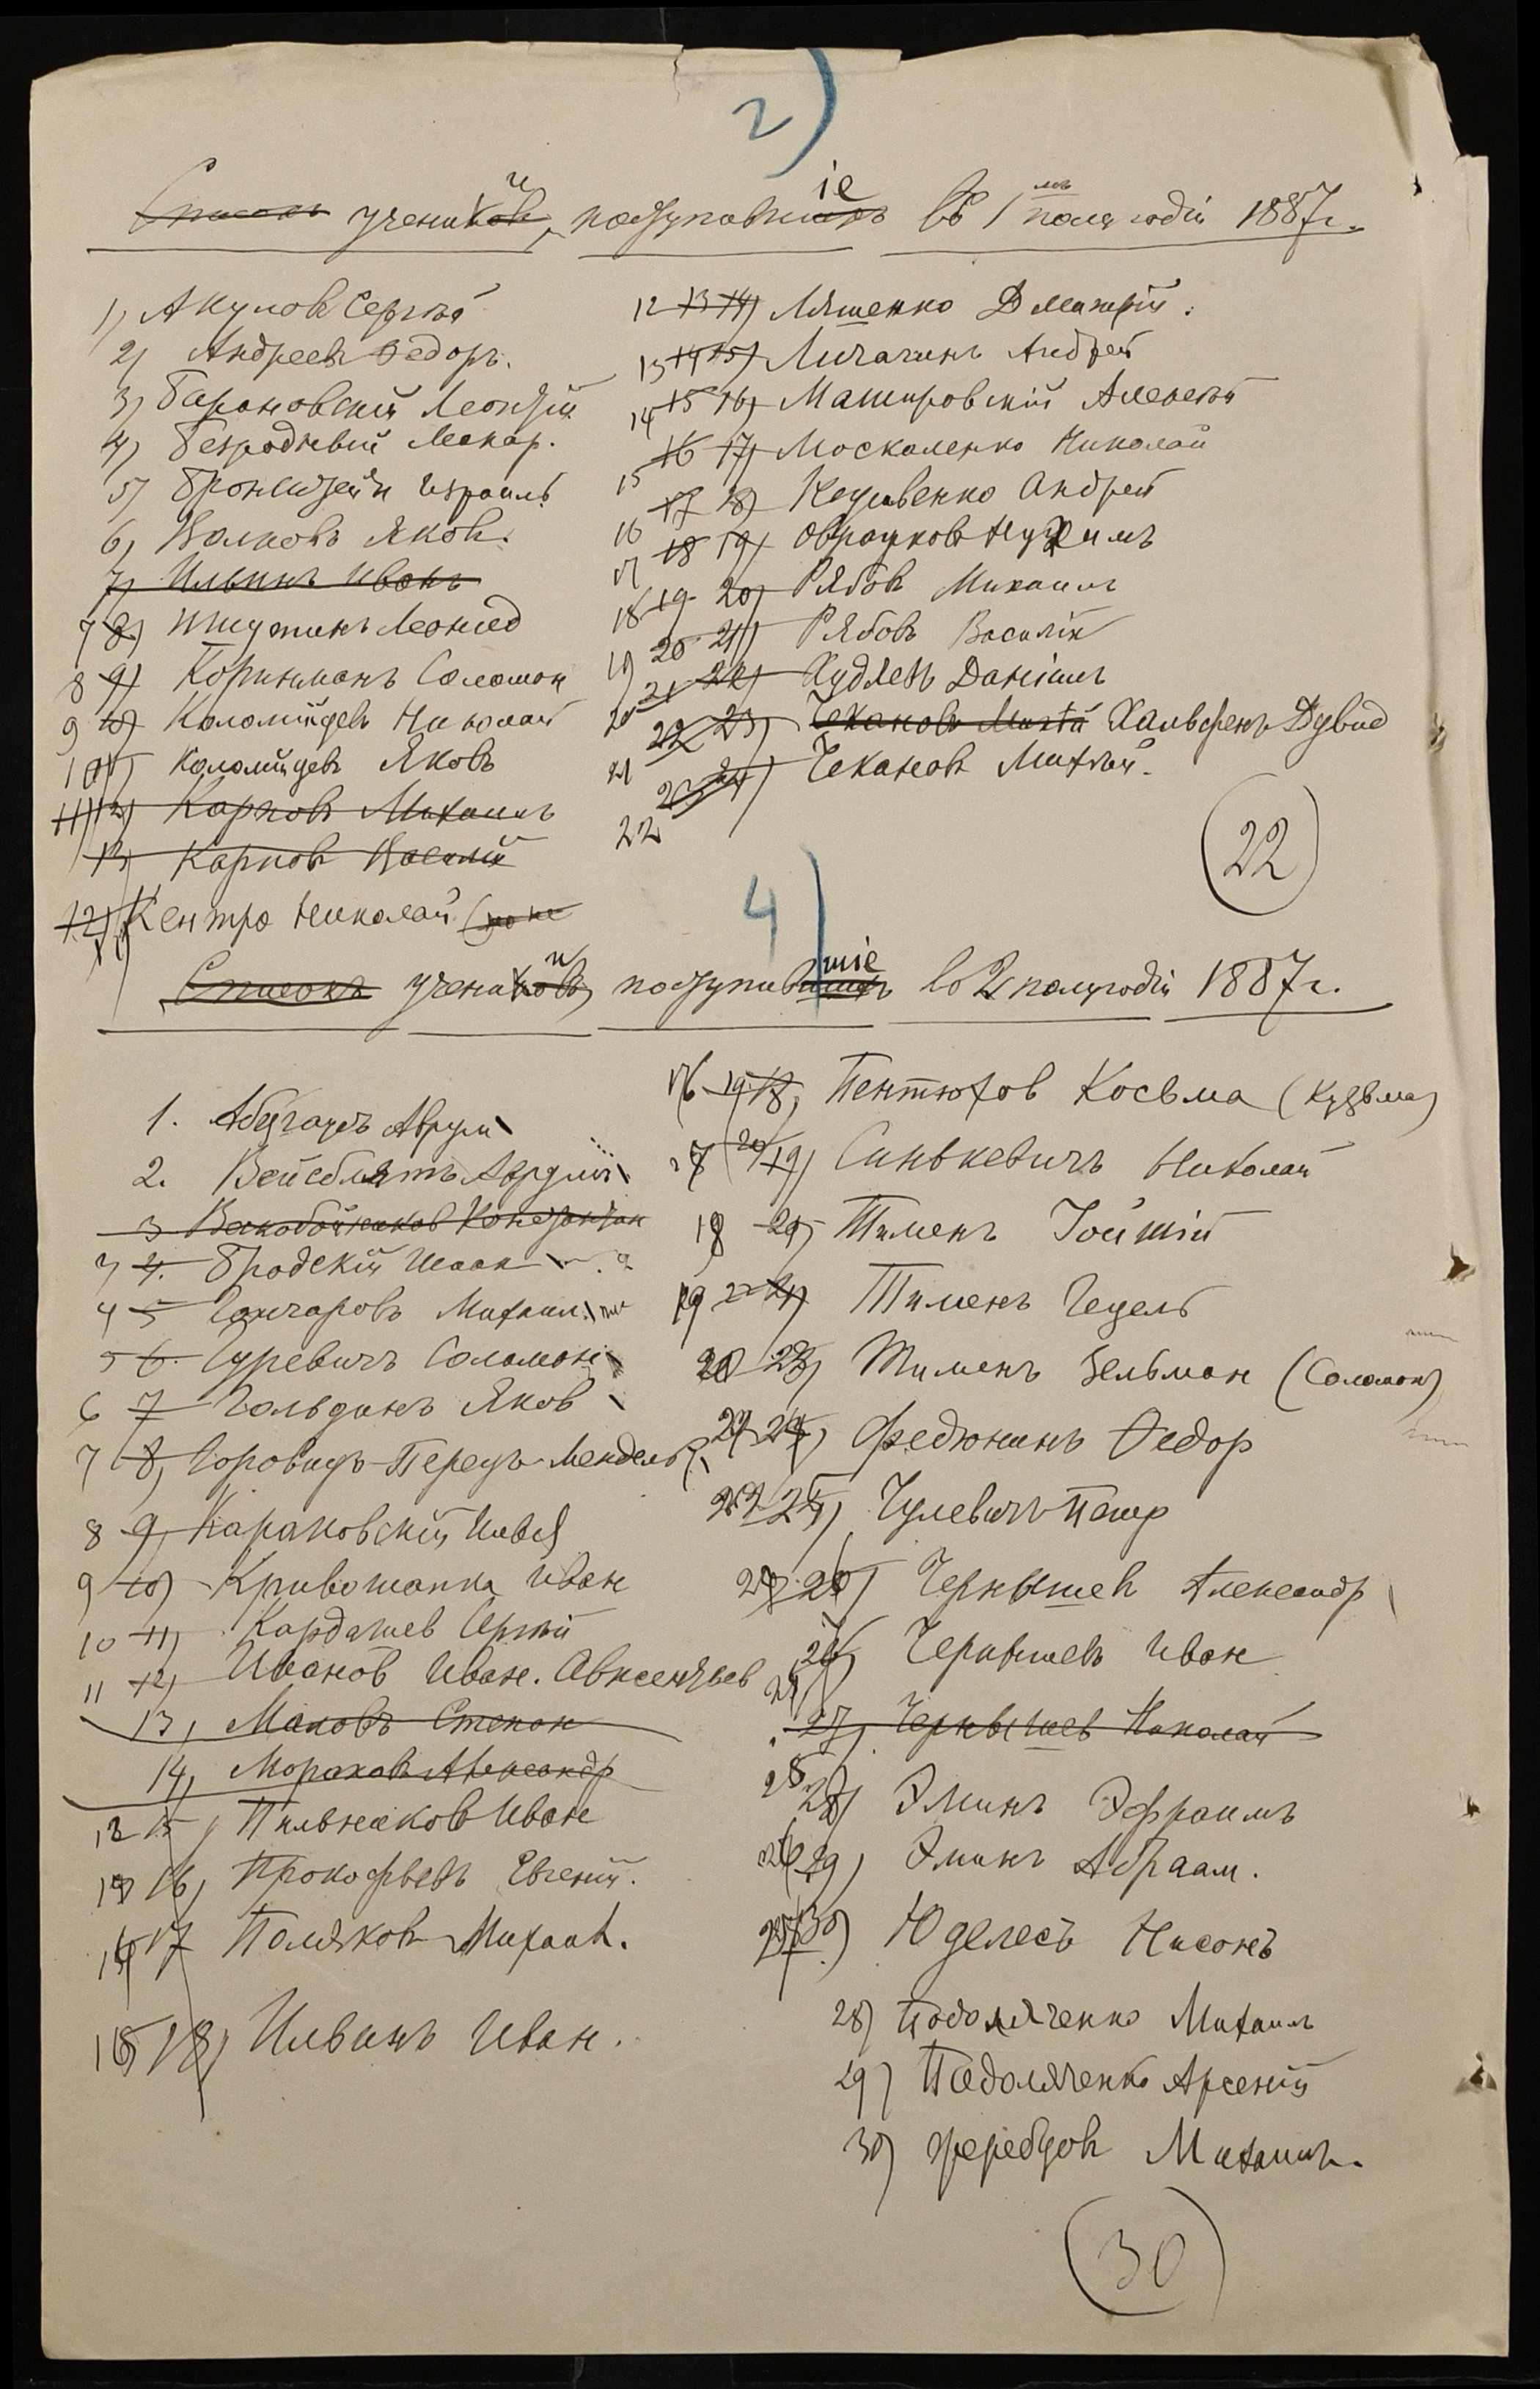 2)
Списокъ ученики, поступившіе въ 1мъ полугодіи 1887г.
1) Акулов Сергѣй
2) Андреевъ Федоръ.
3) Барановскій Леонтій
4) Безродный Макар.
5) Бронштейн Израиль
6) Волковъ Яков.
7) Ильинъ Иванъ
7 8) Ишутинъ Леонид
8 9) Коринманъ Соломон
9 10) Коломійцевъ Николай
10 11) Коломійцевъ Яковъ
11 12) Карповъ Михаилъ
13) Карповъ Василій
12) 11 Кентро Николай
12 13 14) Ляшенко Дмитрій.
13 14 15) Личагинъ Андрей
14 15 16) Машировскій Алексѣй
15 16 17) Москаленко Николай
16 17 18) Андрей
17 18 19) Нухимъ
18 19 20) Рябов Михаилъ
19 20 21) Рябовъ Василій
20 21 22) Худяевъ Даніилъ
21 22 23) Чекановъ Матвѣй Хальфенъ Дувид
22 23 24) Чеканов Матвѣй.
22
4)
Списокъ ученики, поступившіе во 2 полугодіи 1887г.
1. Аврум
2. Вейсблятъ
3 Воскобойников Константин
3 4. Бродскій Исаак
4 5 Гончаровъ Михаил.
5 6. Гуревичъ Соломон
6 7 Гольдинъ Яков
7 8) Горовицъ-Перецъ-Мендель
8 9) Караковскій
9 10) Кривошапка Иван
10 11) Кардашев Сергѣй
11 12) Иванов Иван. Авксентьев
13) Маковъ Степан
14) Морахов Александр
12 15) Пильняков Иван
13 16) Прокофьевъ Евгеній.
14 17 Поляков Михаил.
15 18) Ильинъ Иван.
16 19 18) Пентюхов Косьма (Кузьма)
17 20 19) Синькевичъ Николай
18 20) Тименъ
19 22 21) Тименъ Гецель
20 23) Тименъ Зельман (Соломон)
21 24) Федюнинъ Федор
22 25) Чулевичъ Петр
23 26) Чернышев Александр
24 26) Чернышевъ Иван
27) Чернышев Николай
25 28) Эминъ Эфраимъ
26 29) Эминъ Абраам.
27 30) Юделесъ Нисонъ
28) Подоляченко Михаилъ
29) Подоляченко Арсеній
30) Жеребцов Михаилъ.
30